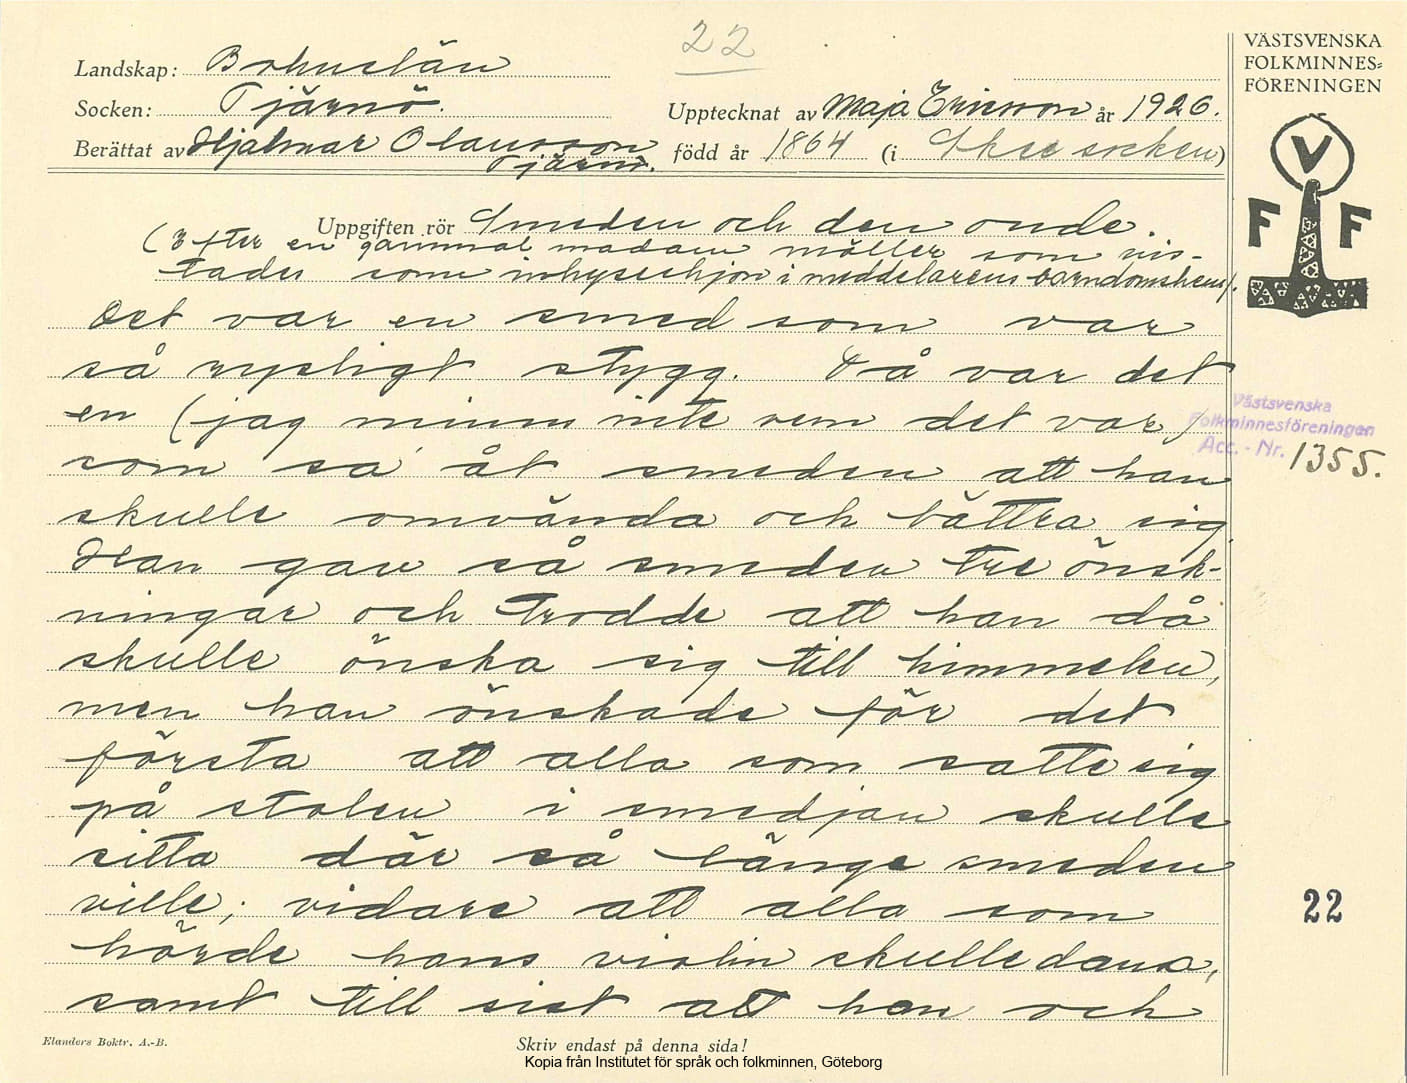 22
Landskap: Bohuslän
Socken: Tjärnö.
Upptecknat av Maja Ericson år 1926.
Berättat av Hjalmar Olausson
Tjärnö.
född år 1864 (i Skee socken)
VÄSTSVENSKA
FOLKMINNES-
FÖRENINGEN
V
F F
Uppgiften rör Smeden och den onde.
(Efter en gammal madam möller som vis-
tades som inhyseshjon i meddelarens barndomshem).
Det var en smed som var
så rysligt stygg. Då var det
en (jag minns inte vem det var)
som sa åt smeden att han
skulle omvända och bättra sig.
Han gav så smeden tre önsk-
ningar och trodde att han då
skulle önska sig till himmelen,
men han önskade för det
första att alla som satte sig
på stolen i smedjan skulle
sitta där så länge smeden
ville; vidare att alla som
hörde hans violin skulle dansa,
samt till sist att han och
Västsvenska
Folkminnesföreningen
Acc. - Nr. 1355.
22
Elanders Boktr. A.-B.
Skriv endast på denna sida!
Kopia från Institutet för språk och folkminnen, Göteborg